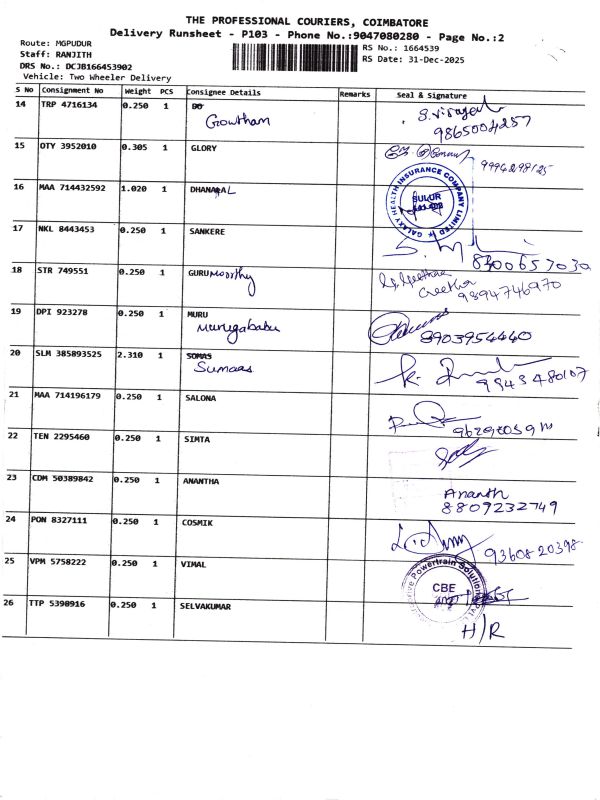 THE PROFESSIONAL COURIERS, COIMBATORE
Delivery Runsheet - P103 - Phone No.:9047080280 - Page No.:2
Route: MGPUDUR
Staff: RANJITH
DRS No.: DCJB166453902
Vehicle: Two Wheeler Delivery
RS No.: 1664539
RS Date: 31-Dec-2025
S No Consignment No Weight PCS Consignee Details Remarks Seal & Signature
14 TRP 4716134 0.250 1
Gowtham
9865004257
15 OTY 3952010 0.305 1 GLORY
9994298125
16 MAA 714432592 1.020 1 DHANAPAL
GALAXY HEALTH INSURANCE COMPANY LIMITED
SULUR
17 NKL 8443453 0.250 1 SANKERE
8300657030
18 STR 749551 0.250 1 GURUMoorthy
Geetha
9894746970
19 DPI 923278 0.250 1 MURU
Murugababu
8903954440
20 SLM 385893525 2.310 1 SOMAS
Sumaas
9943480107
21 MAA 714196179 0.250 1 SALONA
22 TEN 2295460 0.250 1 SIMTA
23 CDM 50389842 0.250 1 ANANTHA
Ananth
8809232749
24 PON 8327111 0.250 1 COSMIK
9360820398
25 VPM 5758222 0.250 1 VIMAL
Powertrain Solutions
CBE
26 TTP 5398916 0.250 1 SELVAKUMAR
H/R